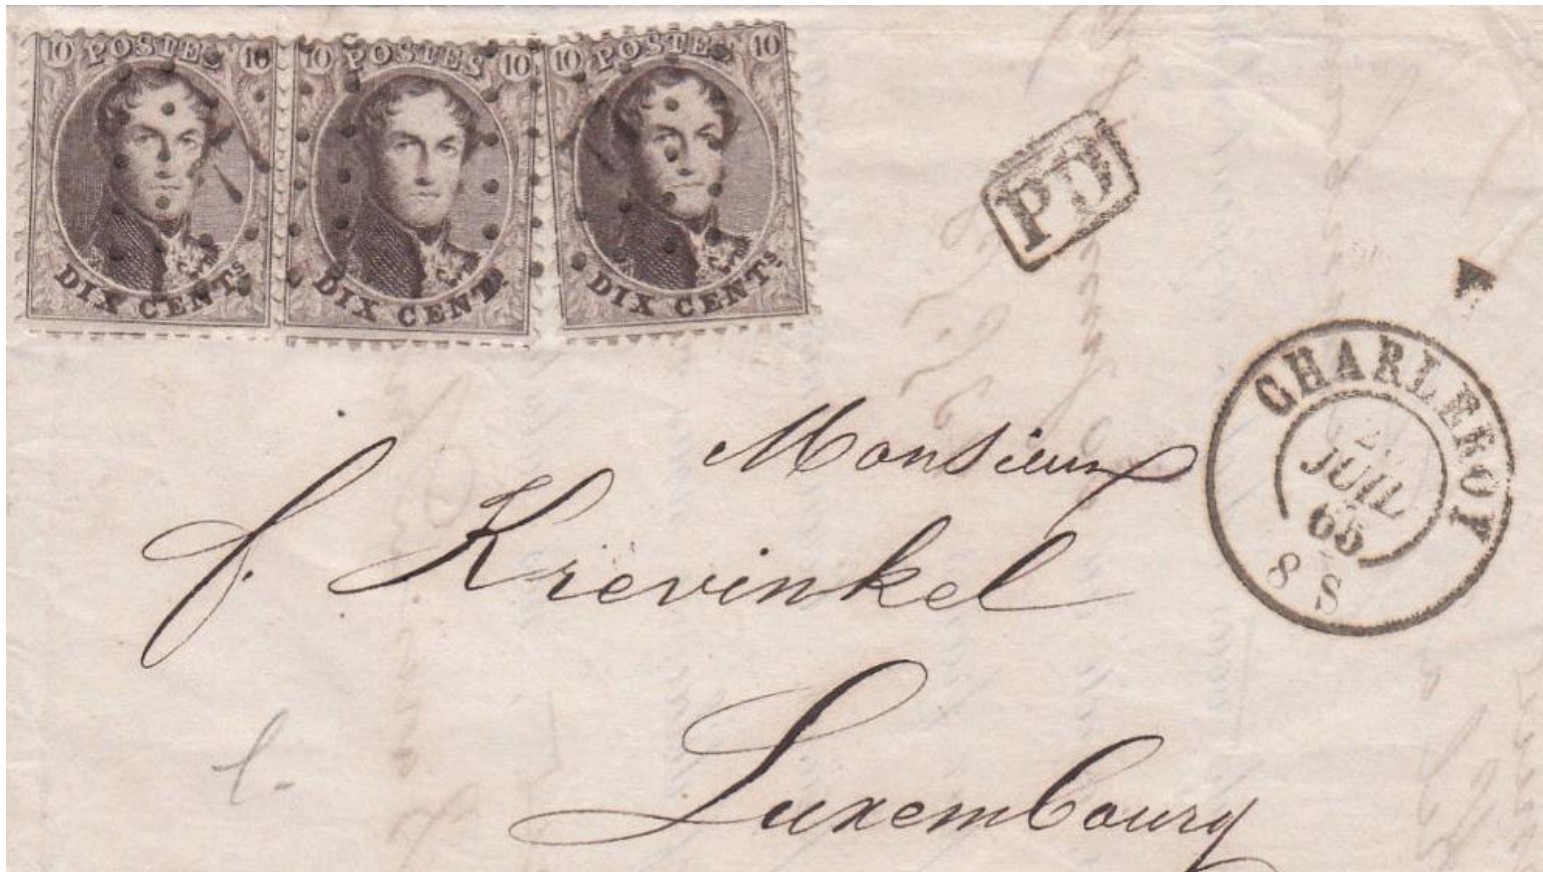 10 POSTES 10
DIX CENTS.
10 POSTES 10
DIX CENTS.
10 POSTES 10
DIX CENTS.
PD
CHARLEROY
JUIL
65
8 S
Monsieur
f. Krevinkel
Luxembourg
l.